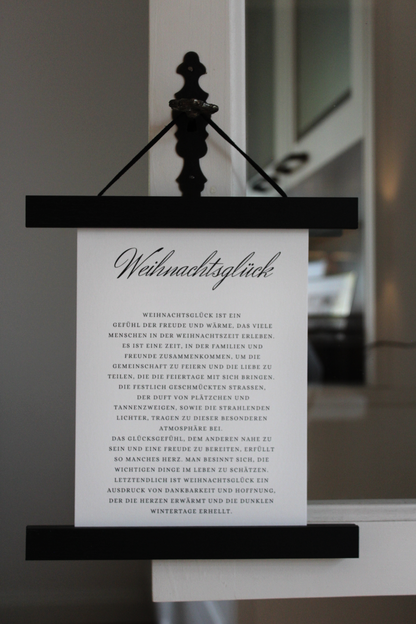 Weihnachtsglück
WEIHNACHTSGLÜCK IST EIN
GEFÜHL DER FREUDE UND WÄRME, DAS VIELE
MENSCHEN IN DER WEIHNACHTSZEIT ERLEBEN.
ES IST EINE ZEIT, IN DER FAMILIEN UND
FREUNDE ZUSAMMENKOMMEN, UM DIE
GEMEINSCHAFT ZU FEIERN UND DIE LIEBE ZU
TEILEN, DIE DIE FEIERTAGE MIT SICH BRINGEN.
DIE FESTLICH GESCHMÜCKTEN STRASSEN,
DER DUFT VON PLÄTZCHEN UND
TANNENZWEIGEN, SOWIE DIE STRAHLENDEN
LICHTER, TRAGEN ZU DIESER BESONDEREN
ATMOSPHÄRE BEI.
DAS GLÜCKSGEFÜHL, DEM ANDEREN NAHE ZU
SEIN UND EINE FREUDE ZU BEREITEN, ERFÜLLT
SO MANCHES HERZ. MAN BESINNT SICH, DIE
WICHTIGEN DINGE IM LEBEN ZU SCHÄTZEN.
LETZTENDLICH IST WEIHNACHTSGLÜCK EIN
AUSDRUCK VON DANKBARKEIT UND HOFFNUNG,
DER DIE HERZEN ERWÄRMT UND DIE DUNKLEN
WINTERTAGE ERHELLT.